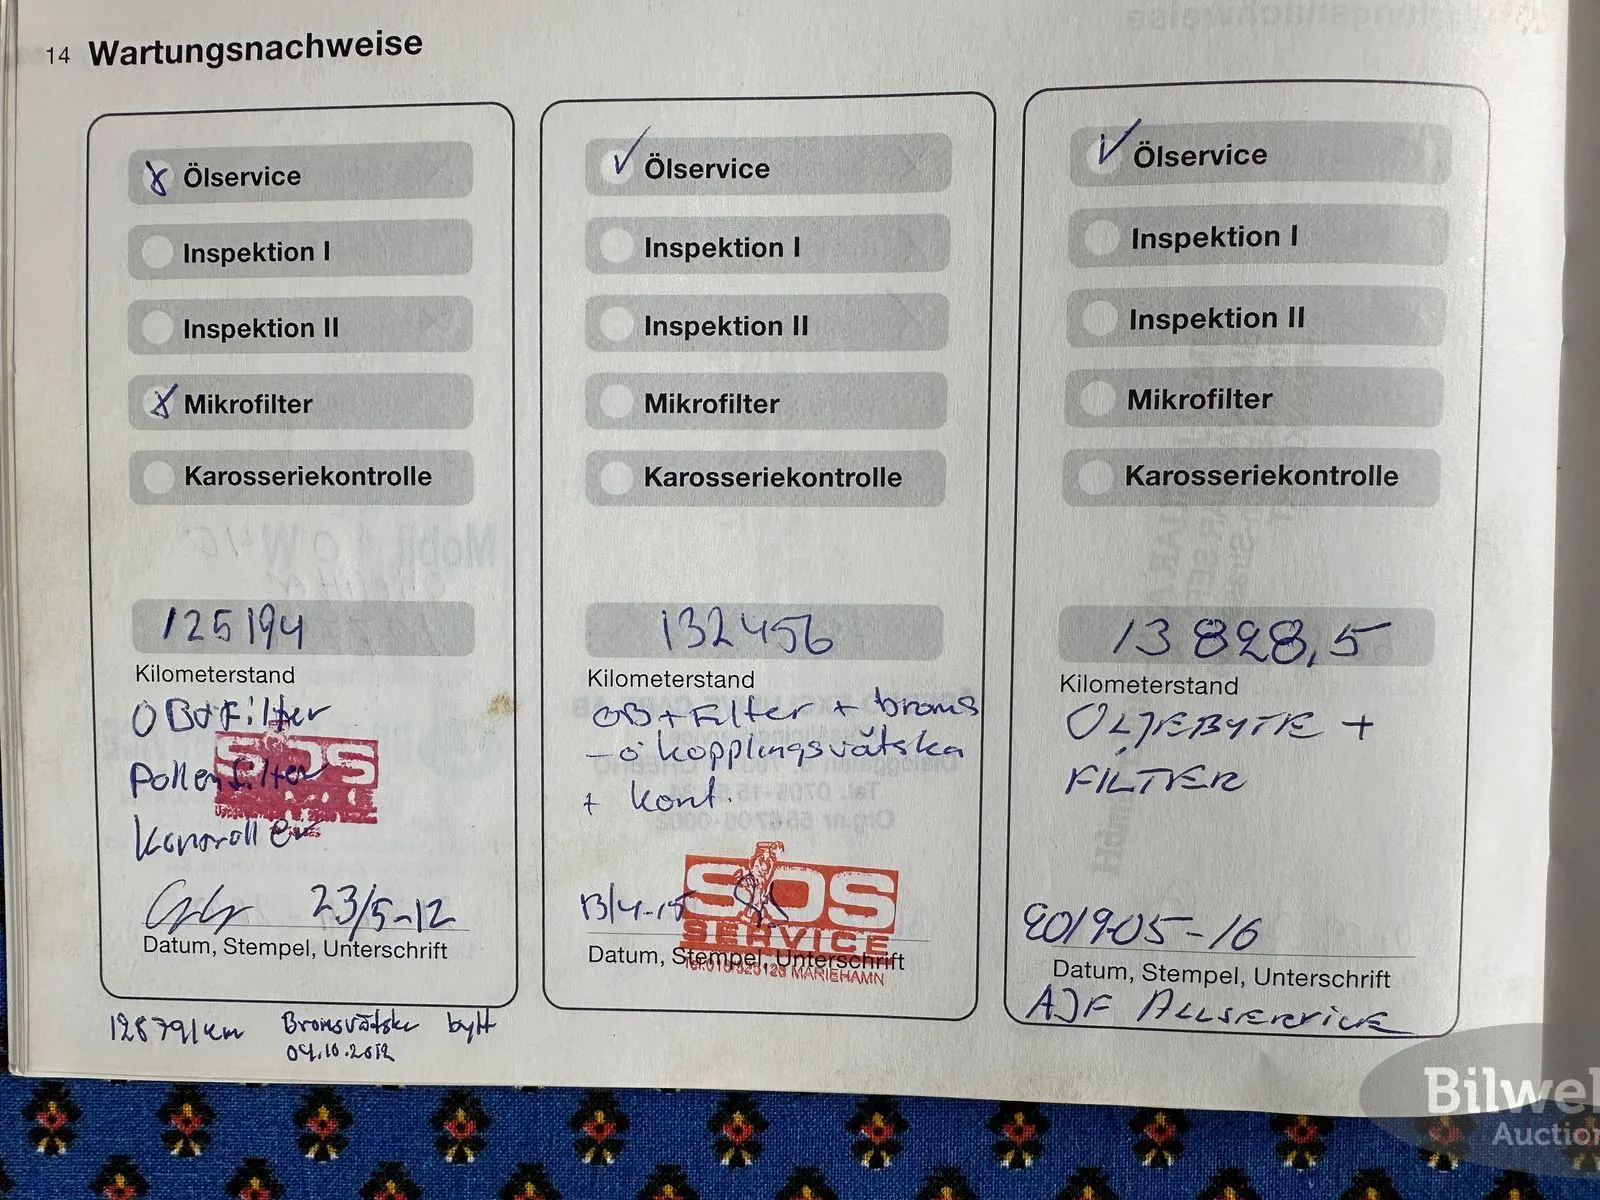 14 Wartungsnachweise
Ölservice
Inspektion I
Inspektion II
Mikrofilter
Karosseriekontrolle
125194
Kilometerstand
OB+Filter
Pollenfilter
Kontroller
SOS
23/5-12
Datum, Stempel, Unterschrift
12879/km Bromsvätske bytt
04.10.2012
Ölservice
Inspektion I
Inspektion II
Mikrofilter
Karosseriekontrolle
132456
Kilometerstand
OB+Filter + broms
-o kopplingsvätska
+ kont.
13/4-15
SOS
SERVICE
MARIEHAMN
Datum, Stempel, Unterschrift
Ölservice
Inspektion I
Inspektion II
Mikrofilter
Karosseriekontrolle
13828,5
Kilometerstand
OLJEBYTE +
FILTER
2019-05-16
Datum, Stempel, Unterschrift
AJF ALLSERVICE
Bilwe
Auction